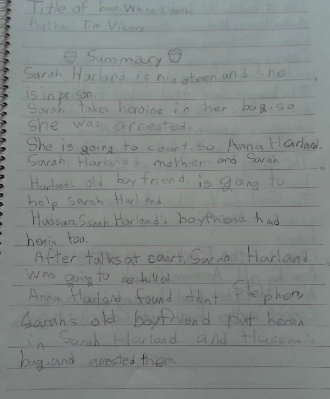 Title of book White Death
Author Tim Vicary
Summary
Sarah Harland is nineteen and she
is in prison.
Sarah takes heroine in her bag. so
she was arrested.
She is going to court. so Anna Harland.
Sarah Harland's mother and Sarah
Harland's old boyfriend is going to
help Sarah Harland.
Hassan Sarah Harland's boyfriend had
heroin too.
After talks at court. Sarah Harland
was going to be killed
Anna Harland found that Stephen
Sarah's old boyfriend put heroin
in Sarah Harland and Hassan's
bag. and arrested them.